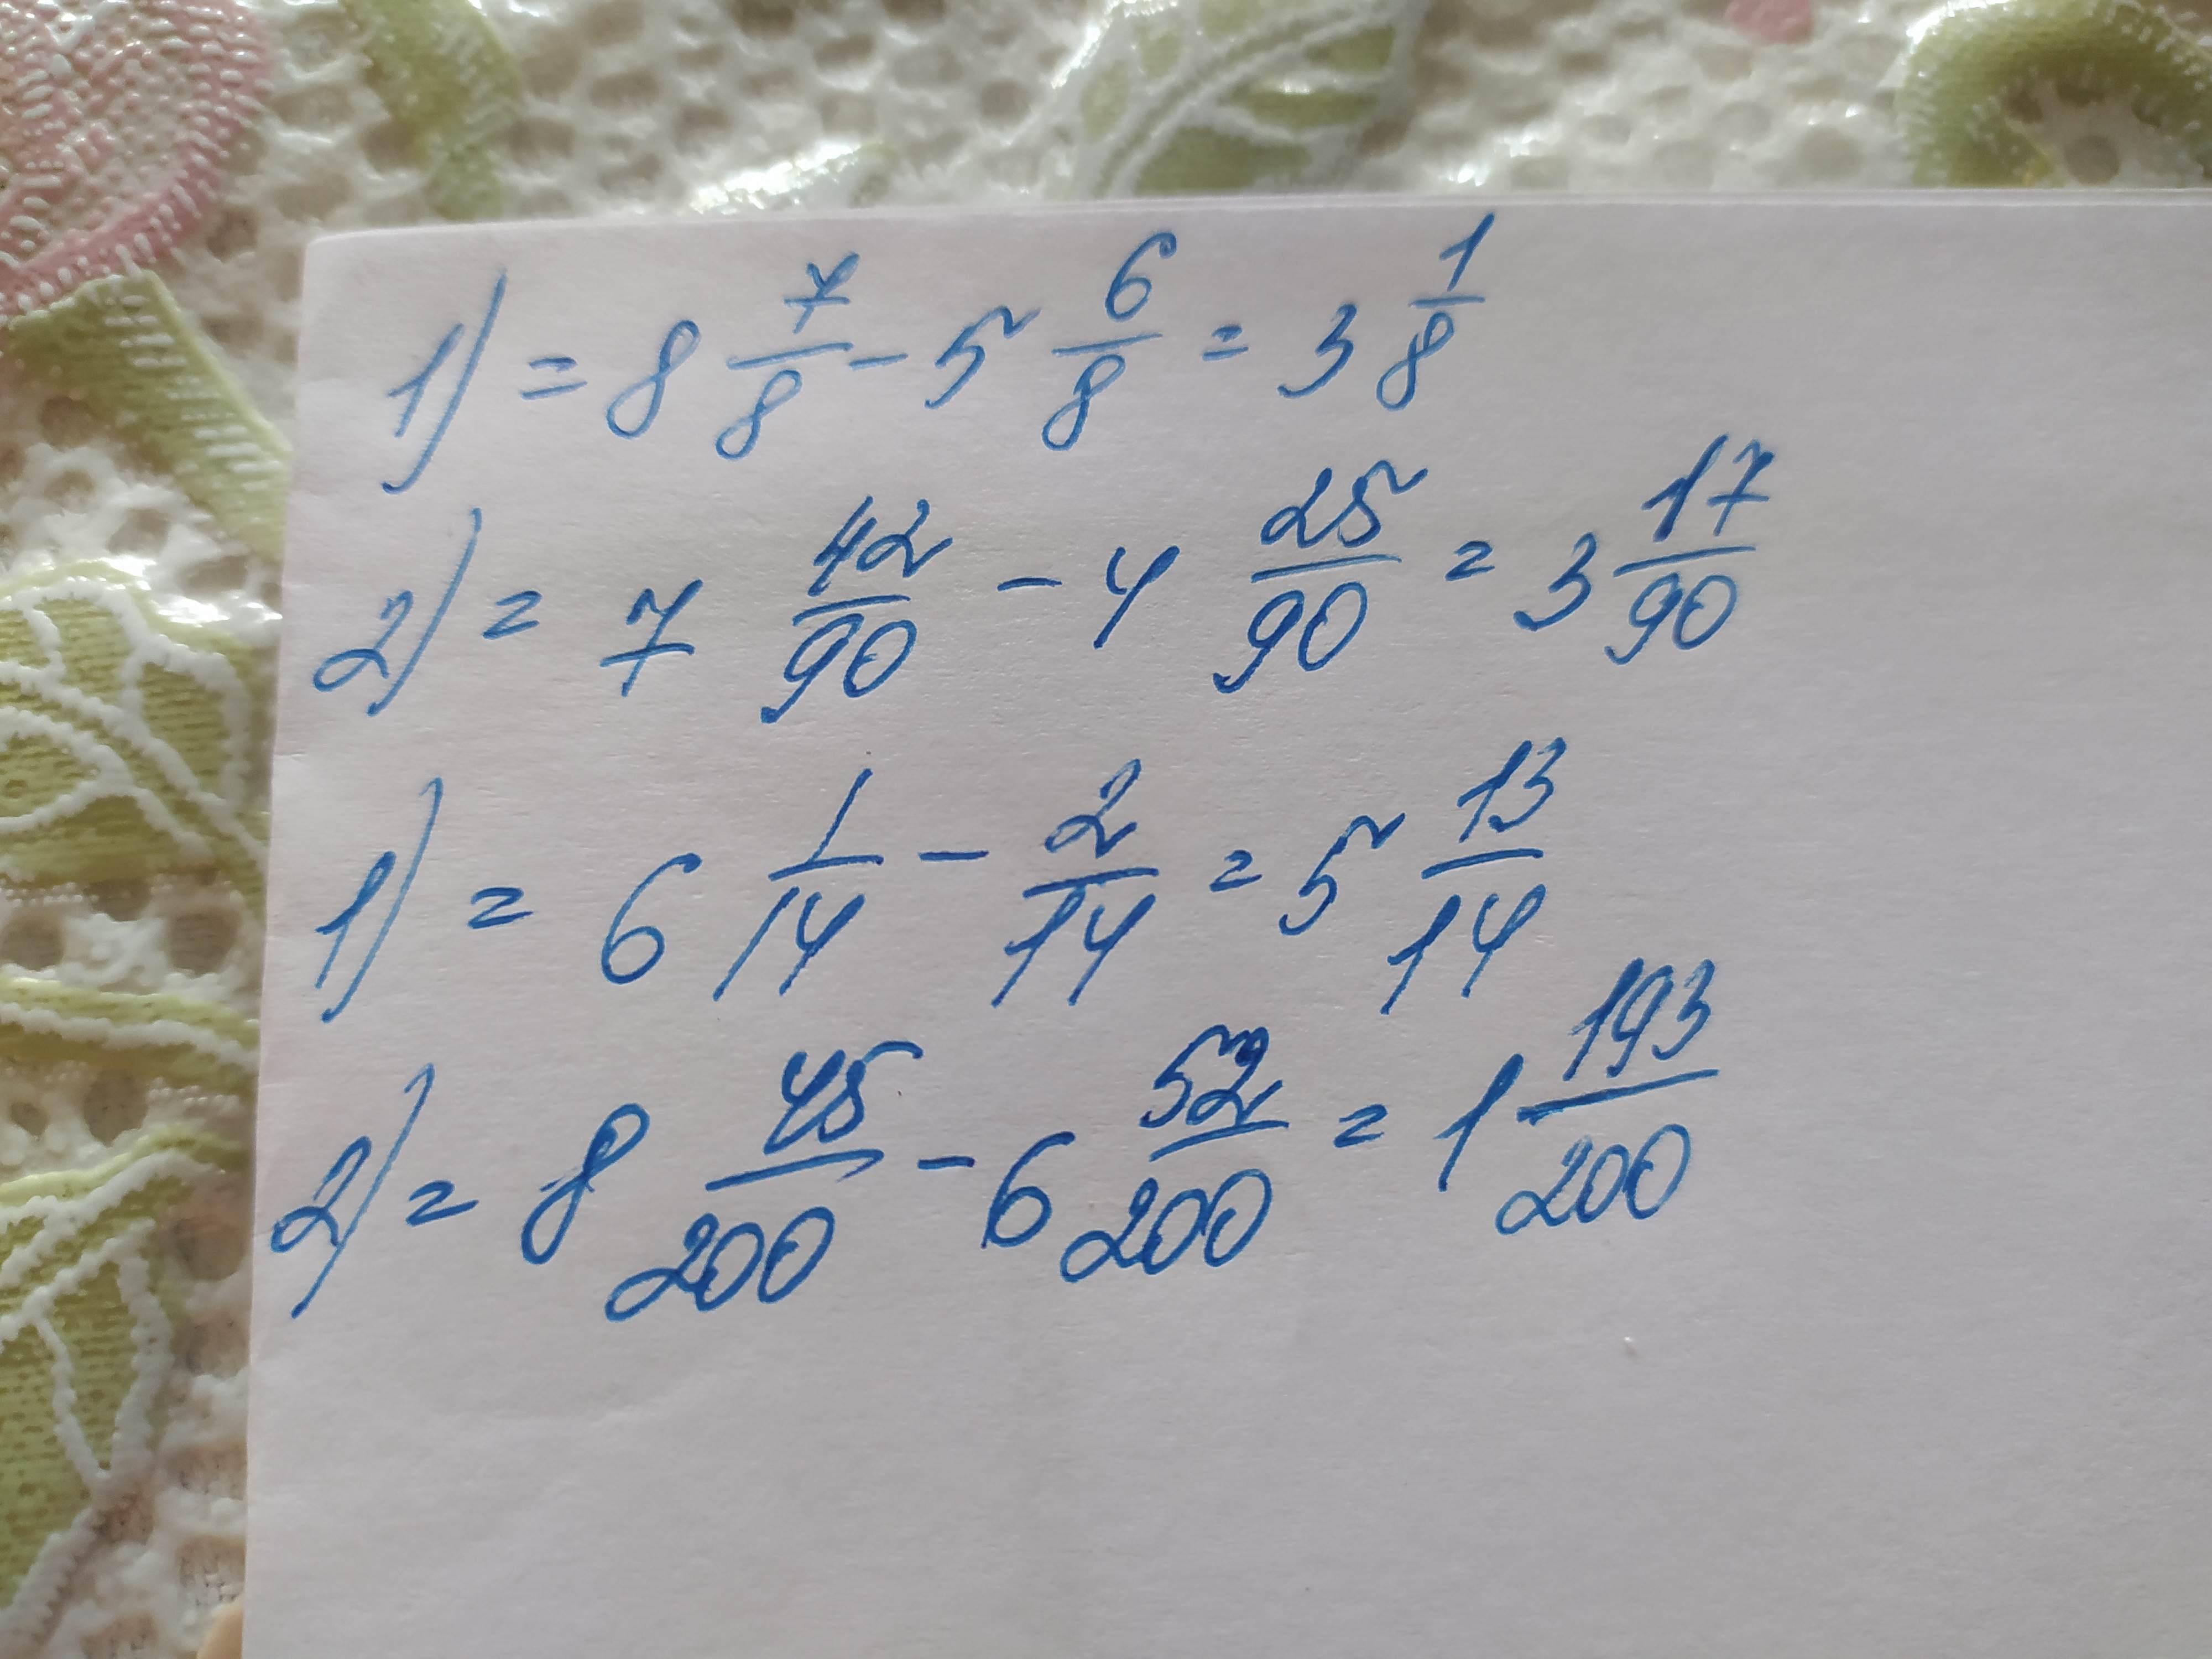 1) = 8 7/8 - 5 6/8 = 3 1/8
2) = 7 42/90 - 4 25/90 = 3 17/90
1) = 6 1/14 - 2/14 = 5 13/14
2) = 8 45/200 - 6 52/200 = 1 193/200